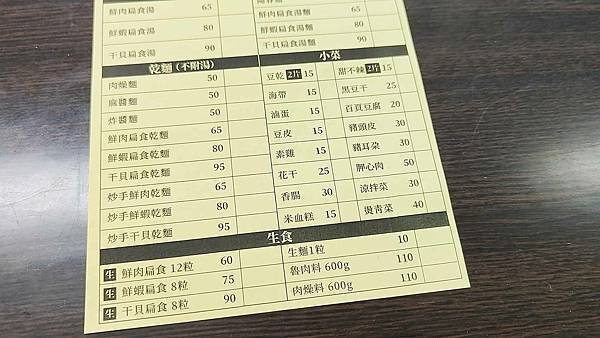 鮮肉扁食湯 65
鮮蝦扁食湯 80
干貝扁食湯 90
鮮肉扁食湯麵
鮮蝦扁食湯麵 80
干貝扁食湯麵 90
乾麵(不附湯)
肉燥麵 50
麻醬麵 50
炸醬麵 50
鮮肉扁食乾麵 65
鮮蝦扁食乾麵 80
干貝扁食乾麵 95
炒手鮮肉乾麵 65
炒手鮮蝦乾麵 80
炒手干貝乾麵 95
小菜
豆乾 2片 15
海帶 15
滷蛋 15
豆皮 15
素雞 15
花干 25
香腸 30
米血糕 15
甜不辣 2片 15
黑豆干 25
百頁豆腐 20
豬頭皮 30
豬耳朵 30
胛心肉 50
涼拌菜 30
燙青菜 40
生食
生 鮮肉扁食 12粒 60
生 鮮蝦扁食 8粒 75
生 干貝扁食 8粒 90
生麵1粒 10
魯肉料 600g 110
肉燥料 600g 110